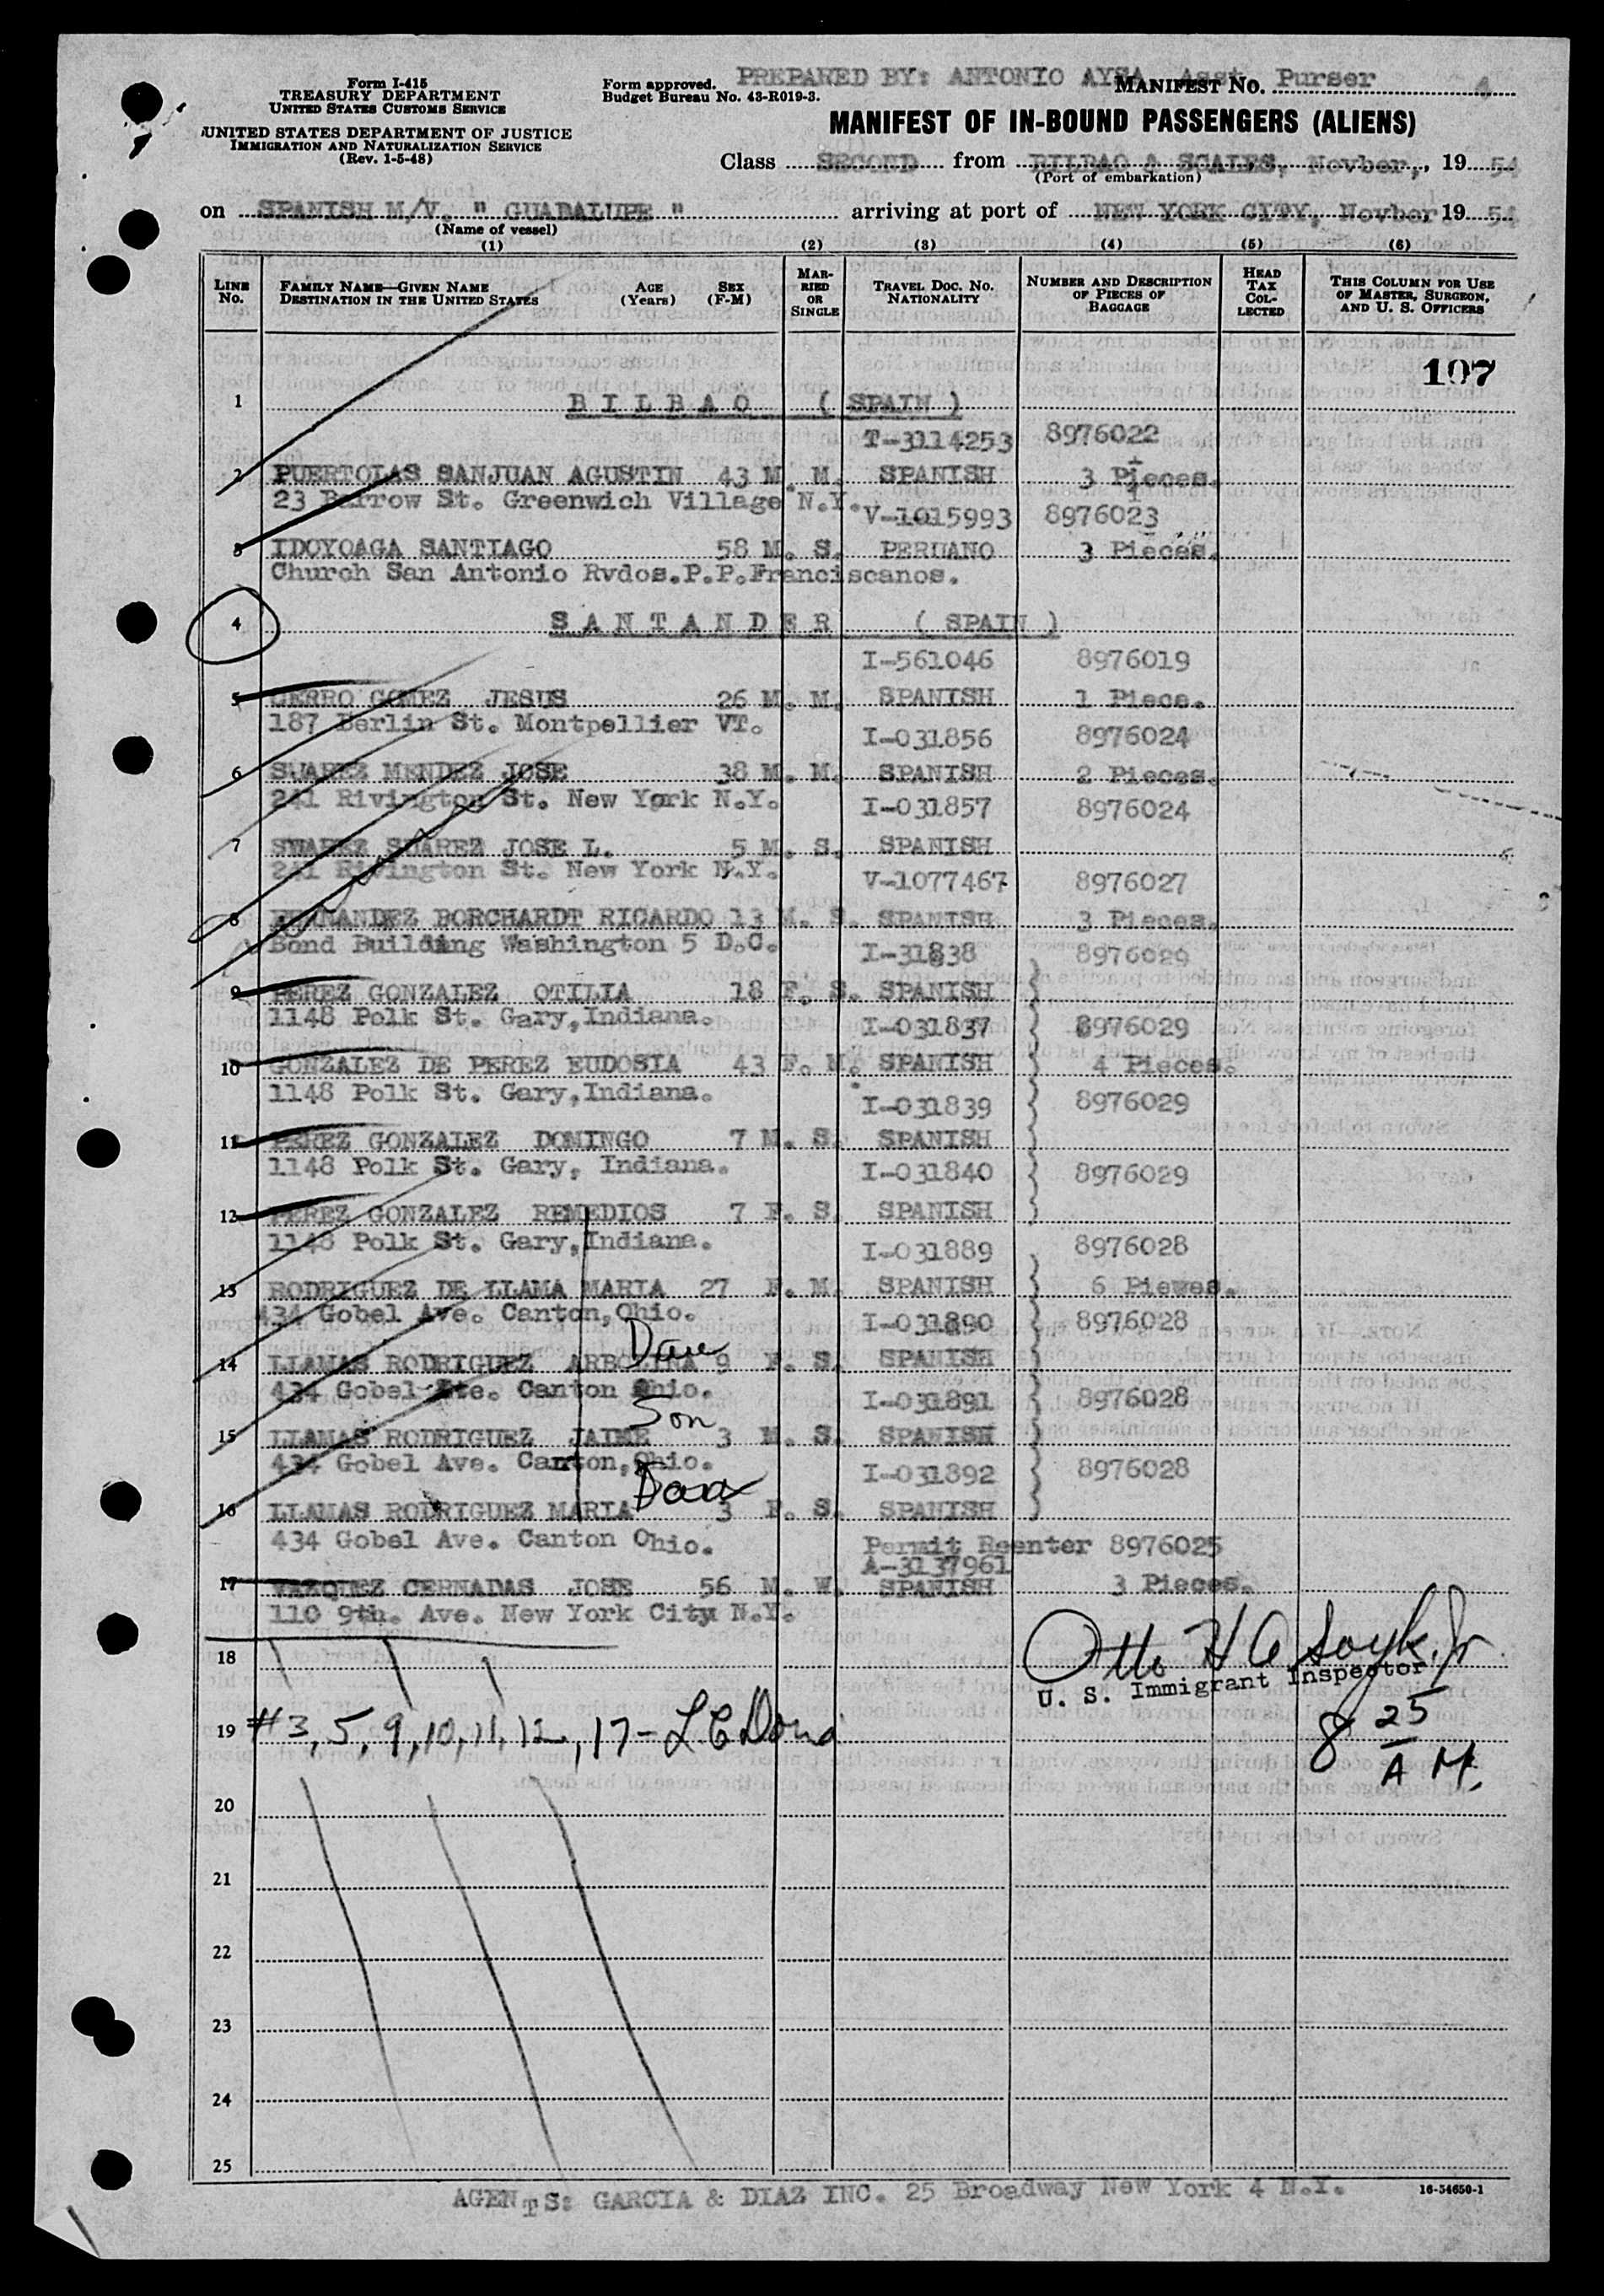 Form I-415
TREASURY DEPARTMENT
UNITED STATES CUSTOMS SERVICE
UNITED STATES DEPARTMENT OF JUSTICE
IMMIGRATION AND NATURALIZATION SERVICE
(Rev. 1-5-48)
Form approved.
Budget Bureau No. 43-R019-3.
PREPARED BY: ANTONIO AYSA Asst. Purser
MANIFEST NO. 4
MANIFEST OF IN-BOUND PASSENGERS (ALIENS)
Class SECOND from BILBAO & SCALES, Novber, , 19 54
(Port of embarkation)
on SPANISH M/V. " GUADALUPE " arriving at port of NEW YORK CITY, Novber 19 54
(Name of vessel)
(1) (2) (3) (4) (5) (6)
LINE No. FAMILY NAME—GIVEN NAME DESTINATION IN THE UNITED STATES AGE (Years) SEX (F-M) MARRIED OR SINGLE TRAVEL DOC. NO. NATIONALITY NUMBER AND DESCRIPTION OF PIECES OF BAGGAGE HEAD TAX COLLECTED THIS COLUMN FOR USE OF MASTER, SURGEON, AND U. S. OFFICERS
107
1 BILBAO (SPAIN)
T-3114253 8976022
2 PUERTOLAS SANJUAN AGUSTIN 43 M. M. SPANISH 3 Pieces.
23 Barrow St. Greenwich Village N.Y.
V-1015993 8976023
3 IDOYOAGA SANTIAGO 58 M. S. PERUANO 3 Pieces.
Church San Antonio Rvdos.P.P.Franciscanos.
4 SANTANDER (SPAIN)
I-561046 8976019
5 CERRO GOMEZ JESUS 26 M. M. SPANISH 1 Piece.
187 Berlin St. Montpellier VT.
I-031856 8976024
6 SUAREZ MENDEZ JOSE 38 M. M. SPANISH 2 Pieces.
241 Rivington St. New York N.Y.
I-031857 8976024
7 SUAREZ SUAREZ JOSE L. 5 M. S. SPANISH
241 Rivington St. New York N.Y.
V-1077467 8976027
8 FERNANDEZ BORCHARDT RICARDO 13 M. S. SPANISH 3 Pieces.
Bond Building Washington 5 D.C.
I-31838 8976029
9 PEREZ GONZALEZ OTILIA 18 F. S. SPANISH
1148 Polk St. Gary, Indiana.
I-031837 8976029
10 GONZALEZ DE PEREZ EUDOSIA 43 F. M. SPANISH 4 Pieces.
1148 Polk St. Gary, Indiana.
I-031839 8976029
11 PEREZ GONZALEZ DOMINGO 7 M. S. SPANISH
1148 Polk St. Gary, Indiana.
I-031840 8976029
12 PEREZ GONZALEZ REMEDIOS 7 F. S. SPANISH
1148 Polk St. Gary, Indiana.
I-031889 8976028
13 RODRIGUEZ DE LLAMA MARIA 27 F. M. SPANISH 6 Pieces.
434 Gobel Ave. Canton, Ohio.
I-031890 8976028
Dau
14 LLAMAS RODRIGUEZ 9 F. S. SPANISH
434 Gobel Ate. Canton Ohio.
I-031891 8976028
Son
15 LLAMAS RODRIGUEZ JAIME 3 M. S. SPANISH
434 Gobel Ave. Canton, Ohio.
I-031892 8976028
Dau
16 LLAMAS RODRIGUEZ MARIA 3 F. S. SPANISH
434 Gobel Ave. Canton Ohio.
Permit Reenter 8976025
A-3137961
17 VAZQUEZ CERNADAS JOSE 56 M. W. SPANISH 3 Pieces.
110 9th. Ave. New York City N.Y.
18
U. S. Immigrant Inspector
19 #3, 5, 9, 10, 11, 12, 17-
8 25
A M.
20
21
22
23
24
25
AGENTS: GARCIA & DIAZ INC. 25 Broadway New York 4 N.Y.
16-54650-1